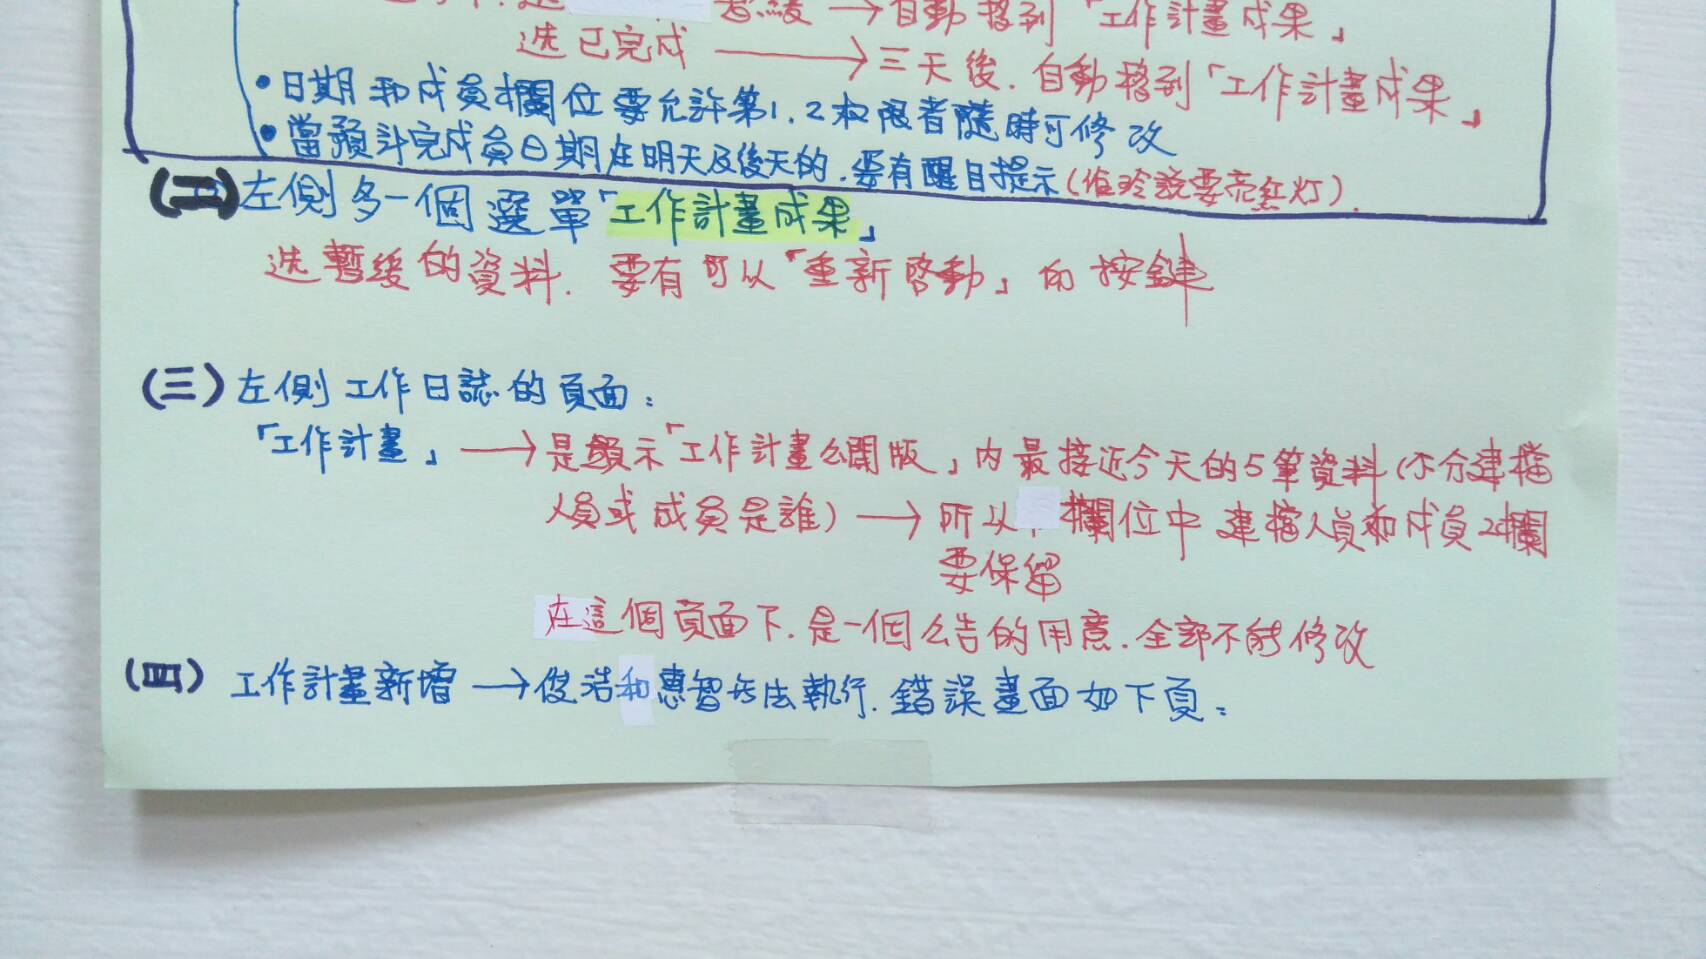 暫緩 → 自動移到「工作計畫成果」
选已完成 → 三天後.自動移到「工作計畫成果」
• 日期和成員欄位要允許第1.2权限者隨時可修改
• 當預計完成員日期在明天及後天的.要有醒目提示(伯玲說要亮紅灯).
(二)左側多一個選單「工作計畫成果」
选暫緩的資料.要有可以「重新啓動」的按鍵
(三)左側工作日誌的頁面:
「工作計畫」→是顯示「工作計畫公開版」內最接近今天的5筆資料(不分建檔
人員或成員是誰) → 所以欄位中建檔人員和成員2欄
要保留
在這個頁面下.是一個公告的用意.全部不能修改
(四)工作計畫新增 → 俊浩和惠智無法執行.錯誤畫面如下頁: